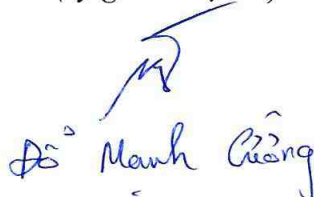 Đỗ Manh Cường